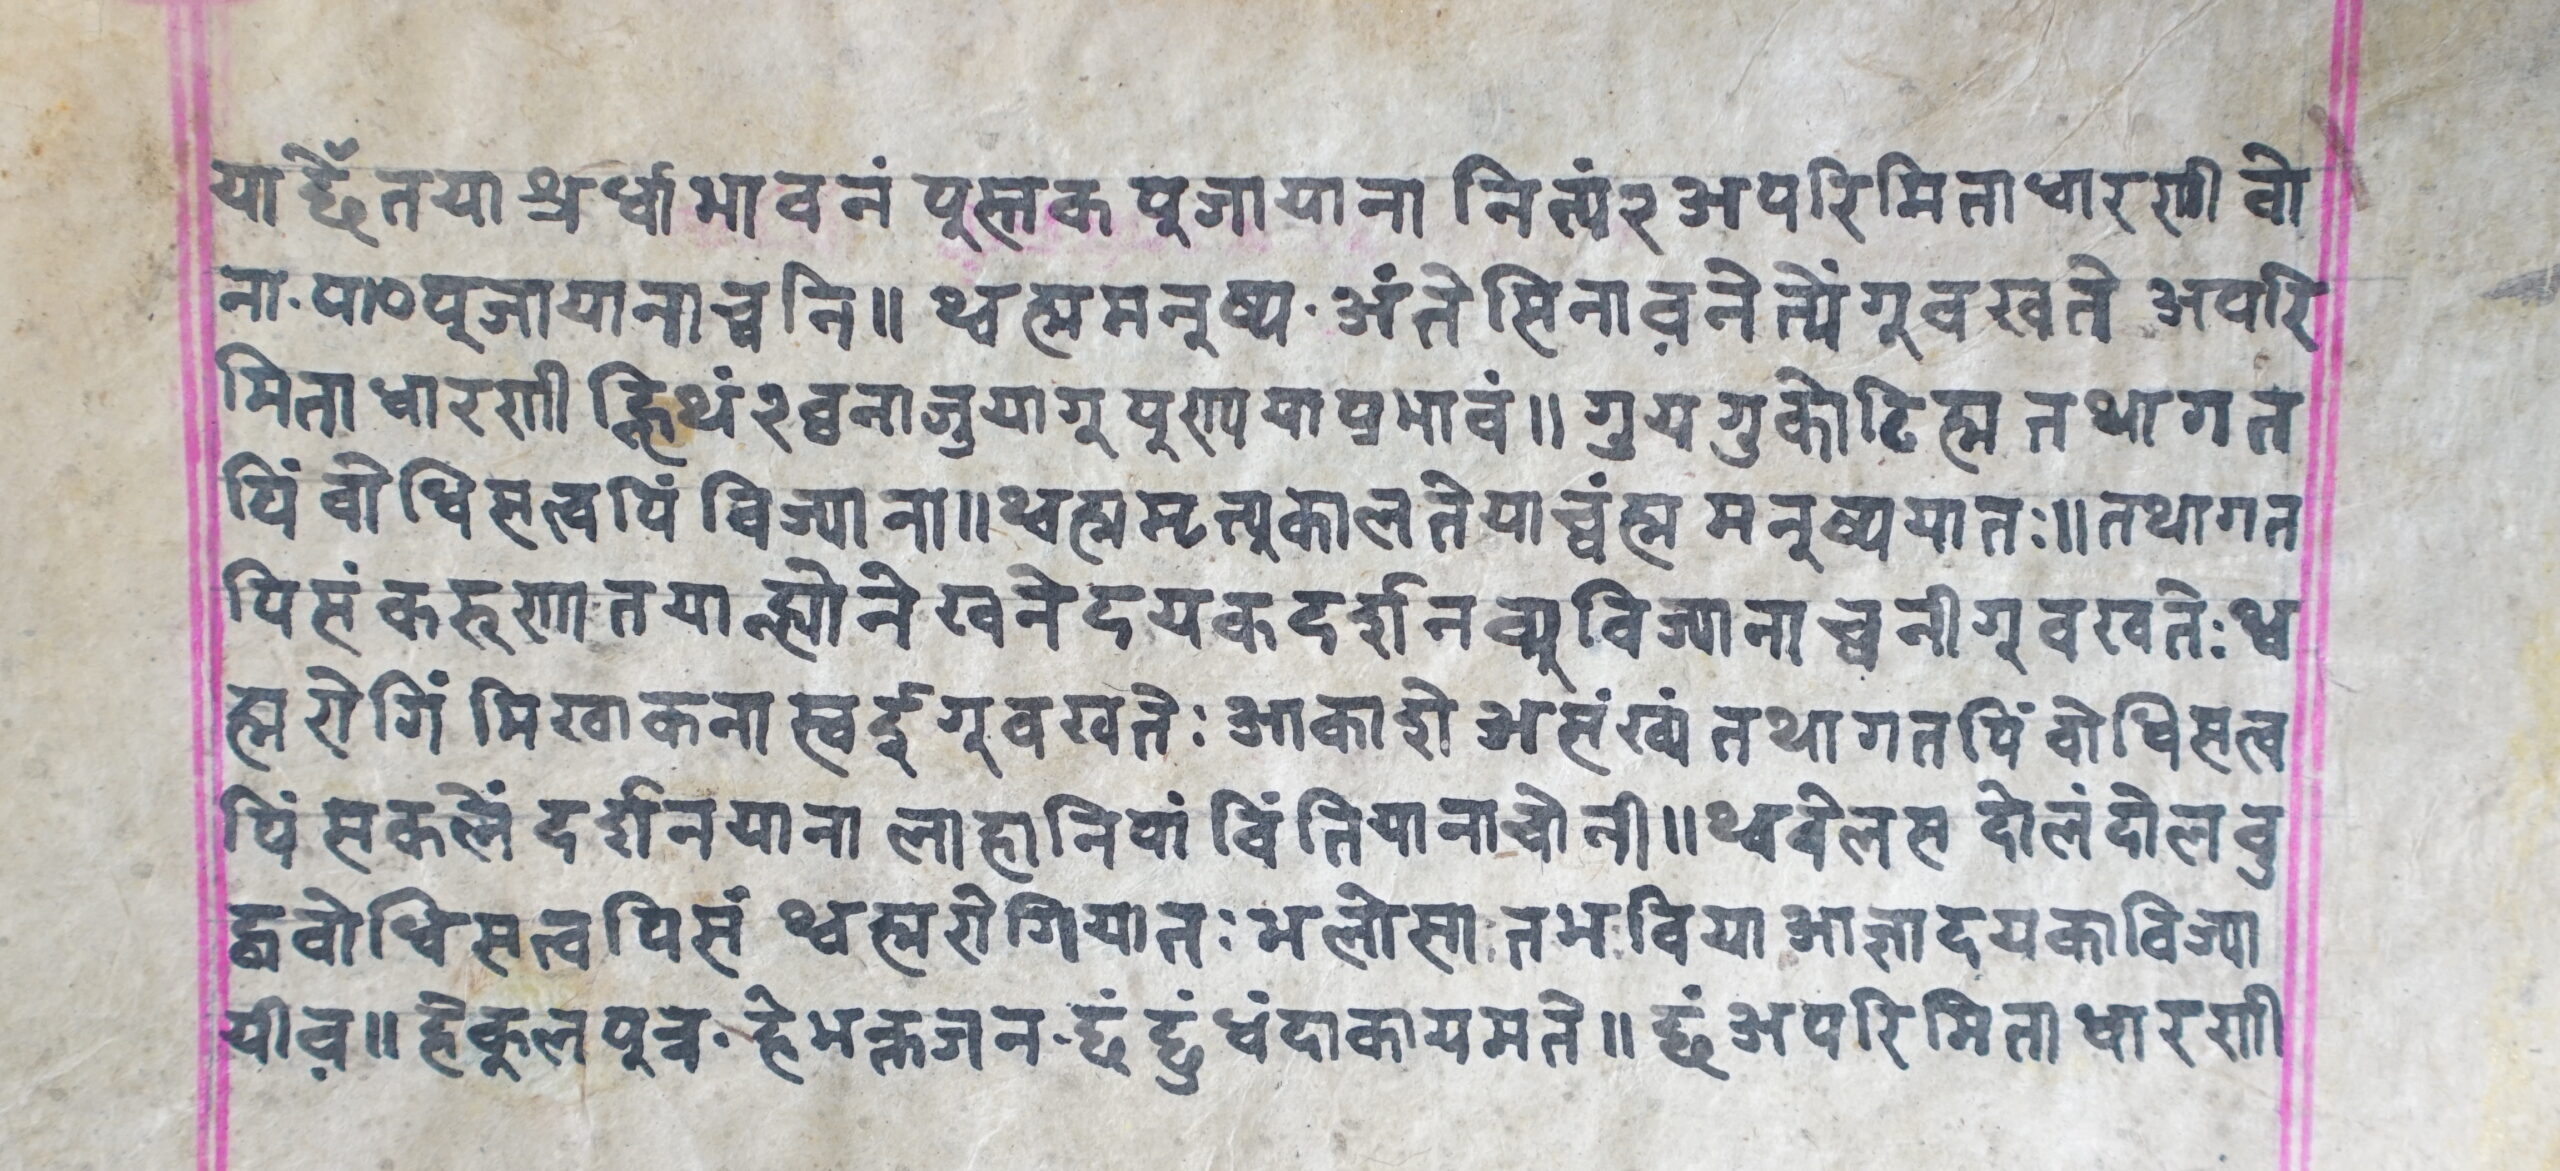 या छेँ तया श्रर्धाभावनं पुस्तक पुजायाना नित्यं२ अपरिमिताधारणी वो
ना. पा० पूजायानाच्वनि॥ थ्वह्ममनुष्य. अंतेसिनाव़नेत्येंगूवखते अपरि
मिताधारणी ह्निथं२ व्वनाजुयागू पुण्ययाप्रभावं॥ गुयगुकोटिह्म तथागत
पिं वोधिसत्वपिं विज्याना॥ थ्वह्ममृत्युकालतेयाच्वंह्म मनुष्ययातः॥ तथागत
पिसं करुणातया ल्ह्योने खनेदयक दर्शनव्यु विज्यानाच्वनीगूवखतेः थ्व
ह्मरोगिं मिखाकना स्वईगूवखतेः आकाशे असंख्यं तथागतपिं वोधिसत्व
पिं सकलें दर्शनयाना लाहानिपां विंतियानाचोनी॥ थ्ववेलस दोलंदोल वु
द्धवोधिसत्वपिसं थ्वह्मरोगियातः भलोसा तभविया आज्ञादयकाविज्या
यीव़॥ हेकुलपुत्र. हेभक्तजन. छं छुं धंदाकायमते॥ छं अपरिमिताधारणी